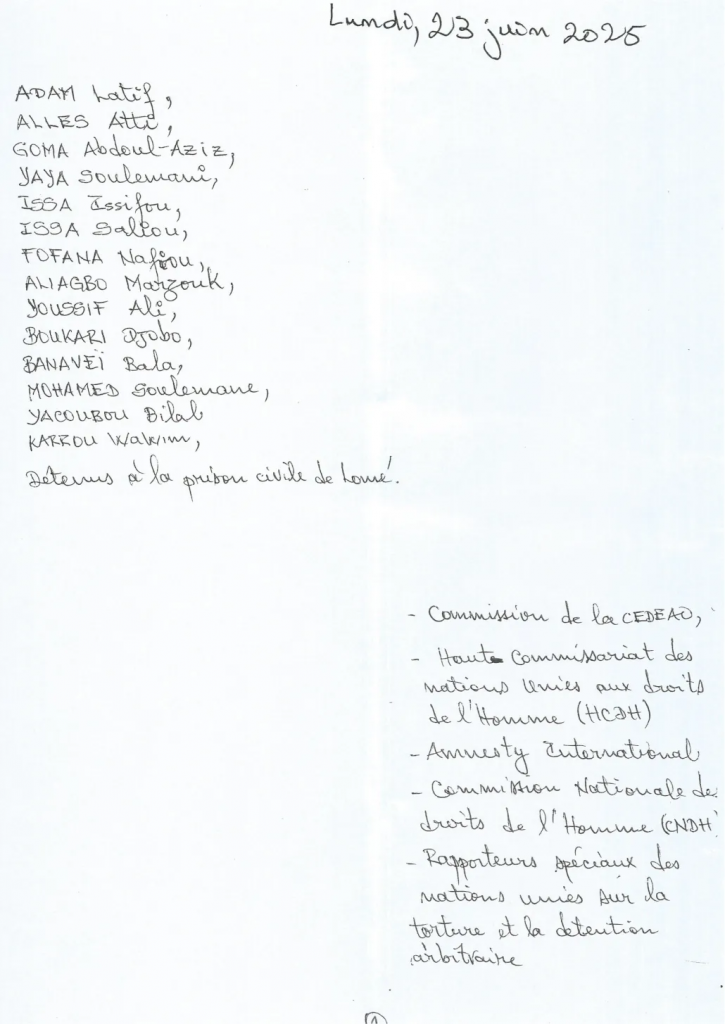 Lundi, 23 juin 2025
ADAM Latif,
ALLES Atti,
GOMA Abdoul-Aziz,
YAYA Soulemani,
ISSA Issifou,
ISSA Saliou,
FOFANA Nafiou,
ALIAGBO Marzouk,
YOUSSIF Ali,
BOUKARI Djobo,
BANAVEÏ Bala,
MOHAMED Soulemane,
YACOUBOU Bilal
KARROU Wawim,
Detenus à la prison civile de Lomé.
- Commission de la CEDEAO,
- Haute Commissariat des
nations Unies aux droits
de l'Homme (HCDH)
- Amnesty International
- Commission Nationale de
droits de l'Homme (CNDH
- Rapporteurs spéciaux des
nations unies sur la
torture et la détention
arbitraire
1